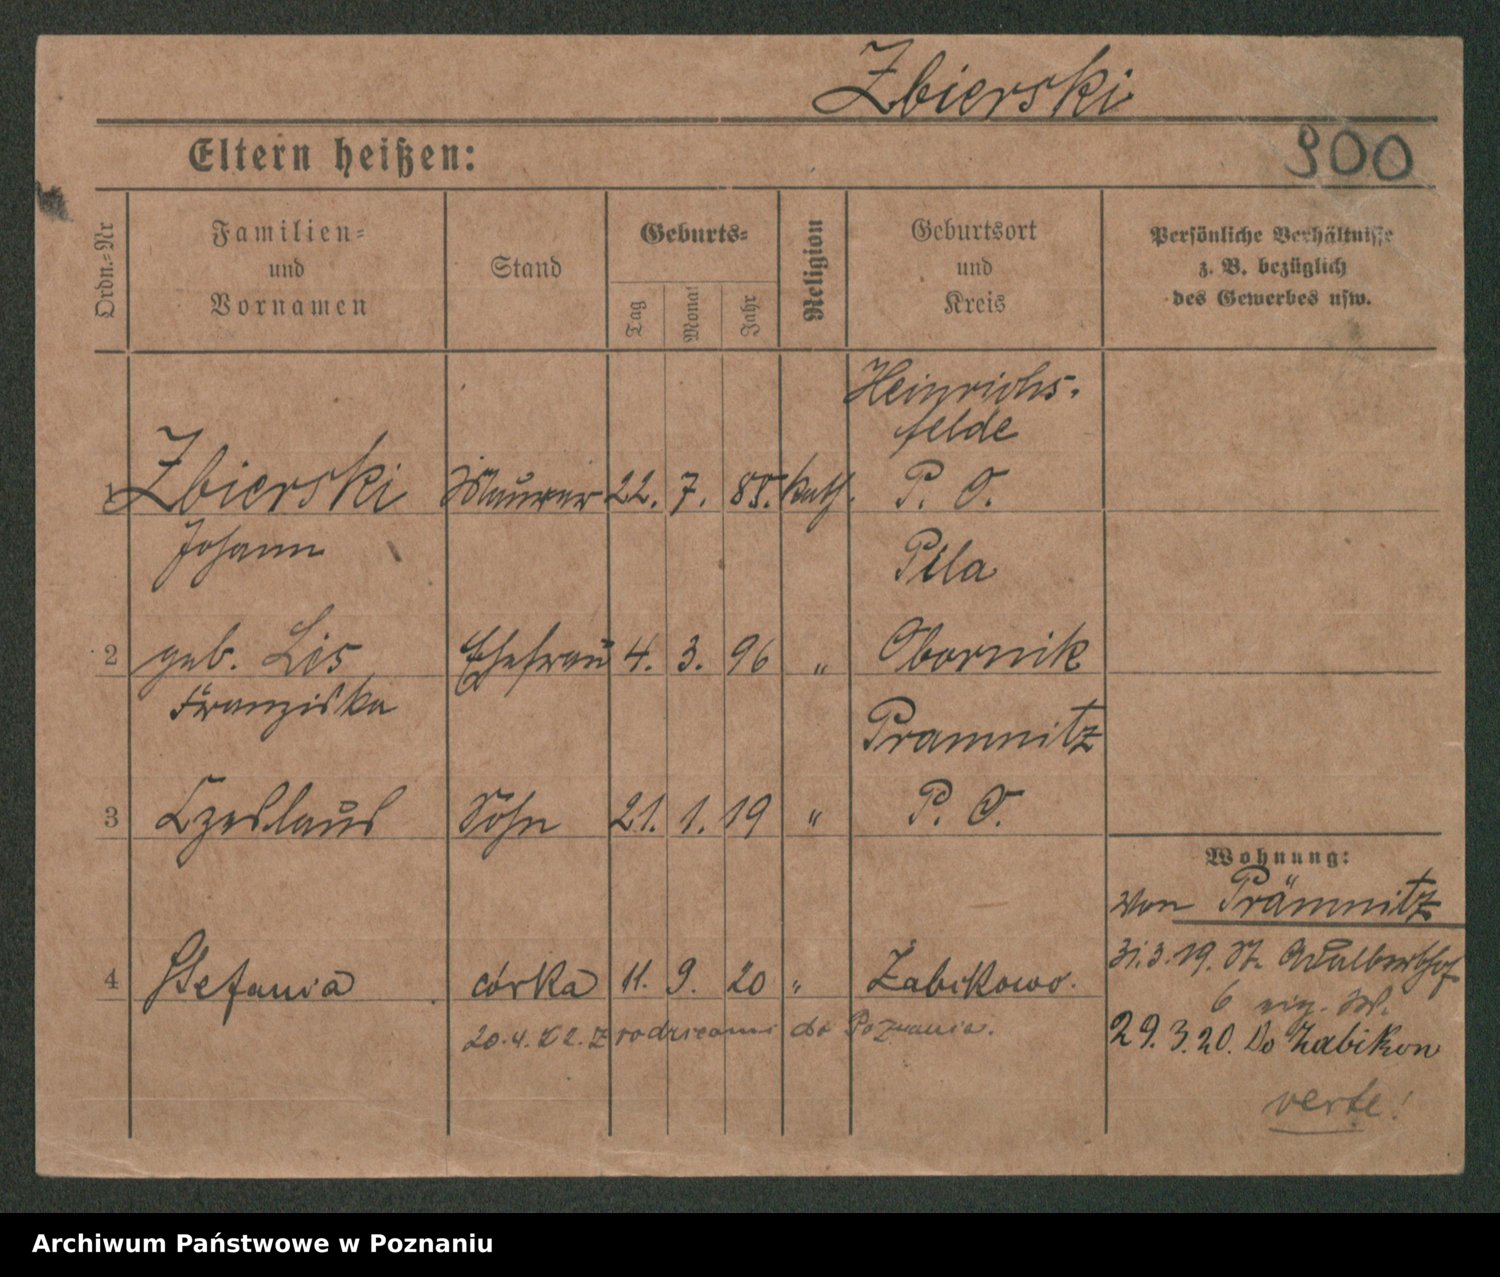 Zbierski
Eltern heißen:
900
Ordn.=Nr
Familien=
und
Vornamen
Stand
Geburts=
Tag
Monat
Jahr
Religion
Geburtsort
und
Kreis
Persönliche Verhältnisse
z. B. bezüglich
des Gewerbes usw.
Heinrichs-
felde
1 Zbierski Maurer 22. 7. 85. kath. P. O.
Johann
Pila
2 geb. Lis Ehefrau 4. 3. 96 " Obornik
Franziska
Pramnitz
3 Czeslaus Sohn 21. 1. 19 " P. O.
Wohnung:
von Prämnitz
31.3.19. St. Adalberthof
6
4 Stefania córka 11. 9. 20 " Żabikowo.
20.4. z rodzicami do Poznania.
29.3.20. Do Zabikow
verte!
Archiwum Państwowe w Poznaniu